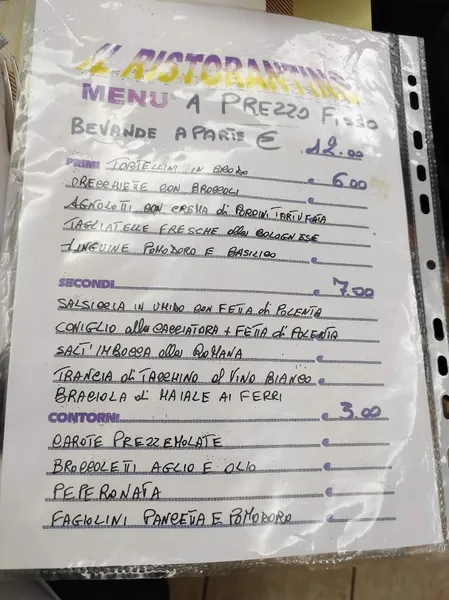 IL RISTORANTINO
MENU A PREZZO FISSO
BEVANDE A PARTE € 12.00
PRIMI TORTELLINI IN BRODO € 6.00
ORECCHIETE CON BROCCOLI €
AGNOLOTTI CON CREMA di PORCINI TARTUFATA
TAGLIATELLE FRESCHE alla BOLOGNESE
LINGUINE POMODORO E BASILICO €
SECONDI € 7.00
SALSICCIA IN UMIDO CON FETTA di POLENTA
CONIGLIO alla CACCIATORA + FETTA di POLENTA
SALT'IMBOCCA alla ROMANA €
TRANCIA di TACCHINO al VINO BIANCO €
BRACIOLA di MAIALE AI FERRI
CONTORNI € 3.00
CAROTE PREZZEMOLATE €
BROCCOLETTI AGLIO E OLIO €
PEPERONATA €
FAGIOLINI PANCETTA E POMODORO €